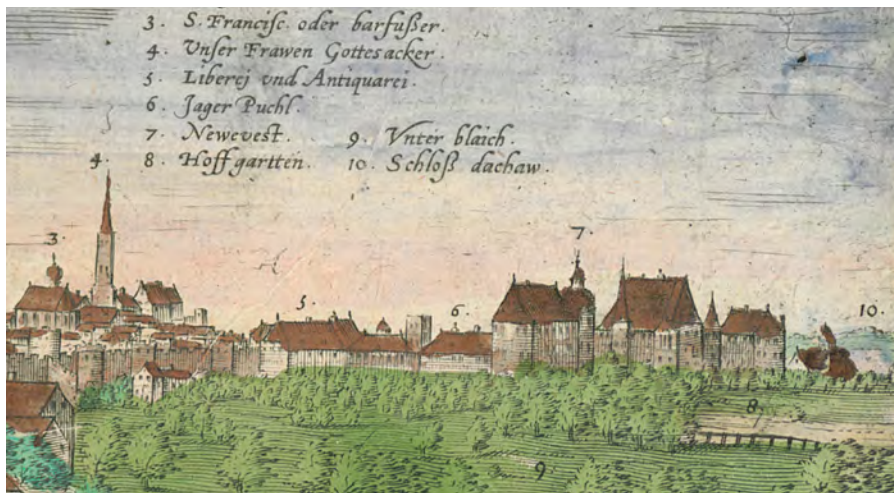 3. S. Francisc. oder barfußer.
4. Vnser Frawen Gottesacker.
5. Liberej vnd Antiquarei.
6. Jager Puchl.
7. Newevest. 9. Vnter blaich.
4. 8. Hoffgartten. 10. Schloß dachaw.
3. 7.
5. 6. 10.
8.
9.